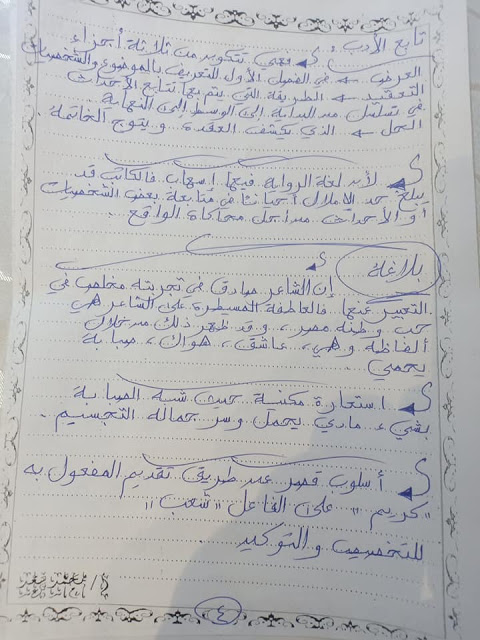 تابع الأدب :
ج ← فهي تتكون من ثلاثة أجزاء
العرض ← في الفصول الأولى للتعريف بالموضوع والشخصيات
التعقيد ← الطريقة التي يتم بها تتابع الأحداث
في تسلسل من البداية إلى الوسط إلى النهاية
الحل ← الذي يكشف العقدة ويتوج الخاتمة
ج ← لأن لغة الرواية فيها إسهاب فالكاتب قد
يبلغ حد الاملال أحيانا في متابعة بعض الشخصيات
أو الأحداث من أجل محاكاة الواقع
بلاغة
ج إن الشاعر صادق في تجربته مخلص في
التعبير عنها فالعاطفة المسيطرة على الشاعر هي
حب وطنه مصر ، وقد ظهر ذلك من خلال
ألفاظه وهي ، عاشق ، هواك ، صبابة
يحمي
ج ← استعارة مكنية حيث شبه الصبابة
بشيء مادي يحمل وسر جماله التجسيم .
ج ← أسلوب قصر عن طريق تقديم المفعول به
"كريم" على الفاعل "شعب"
للتخصيص والتوكيد
٤